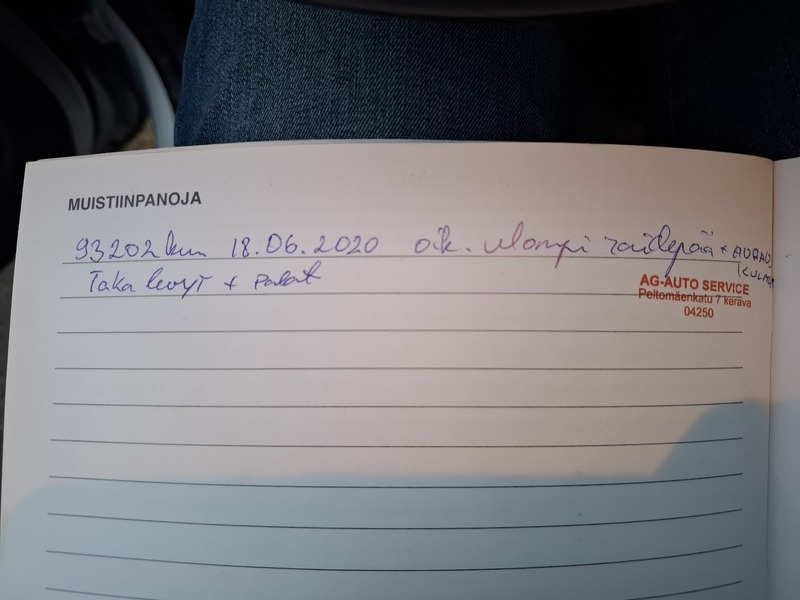 MUISTIINPANOJA
93202km 18.06.2020 oik. ulompi raidepää + AURAUS
KULMAT
Taka levyt + Palat
AG-AUTO SERVICE
Peltomäenkatu 7 kerava
04250